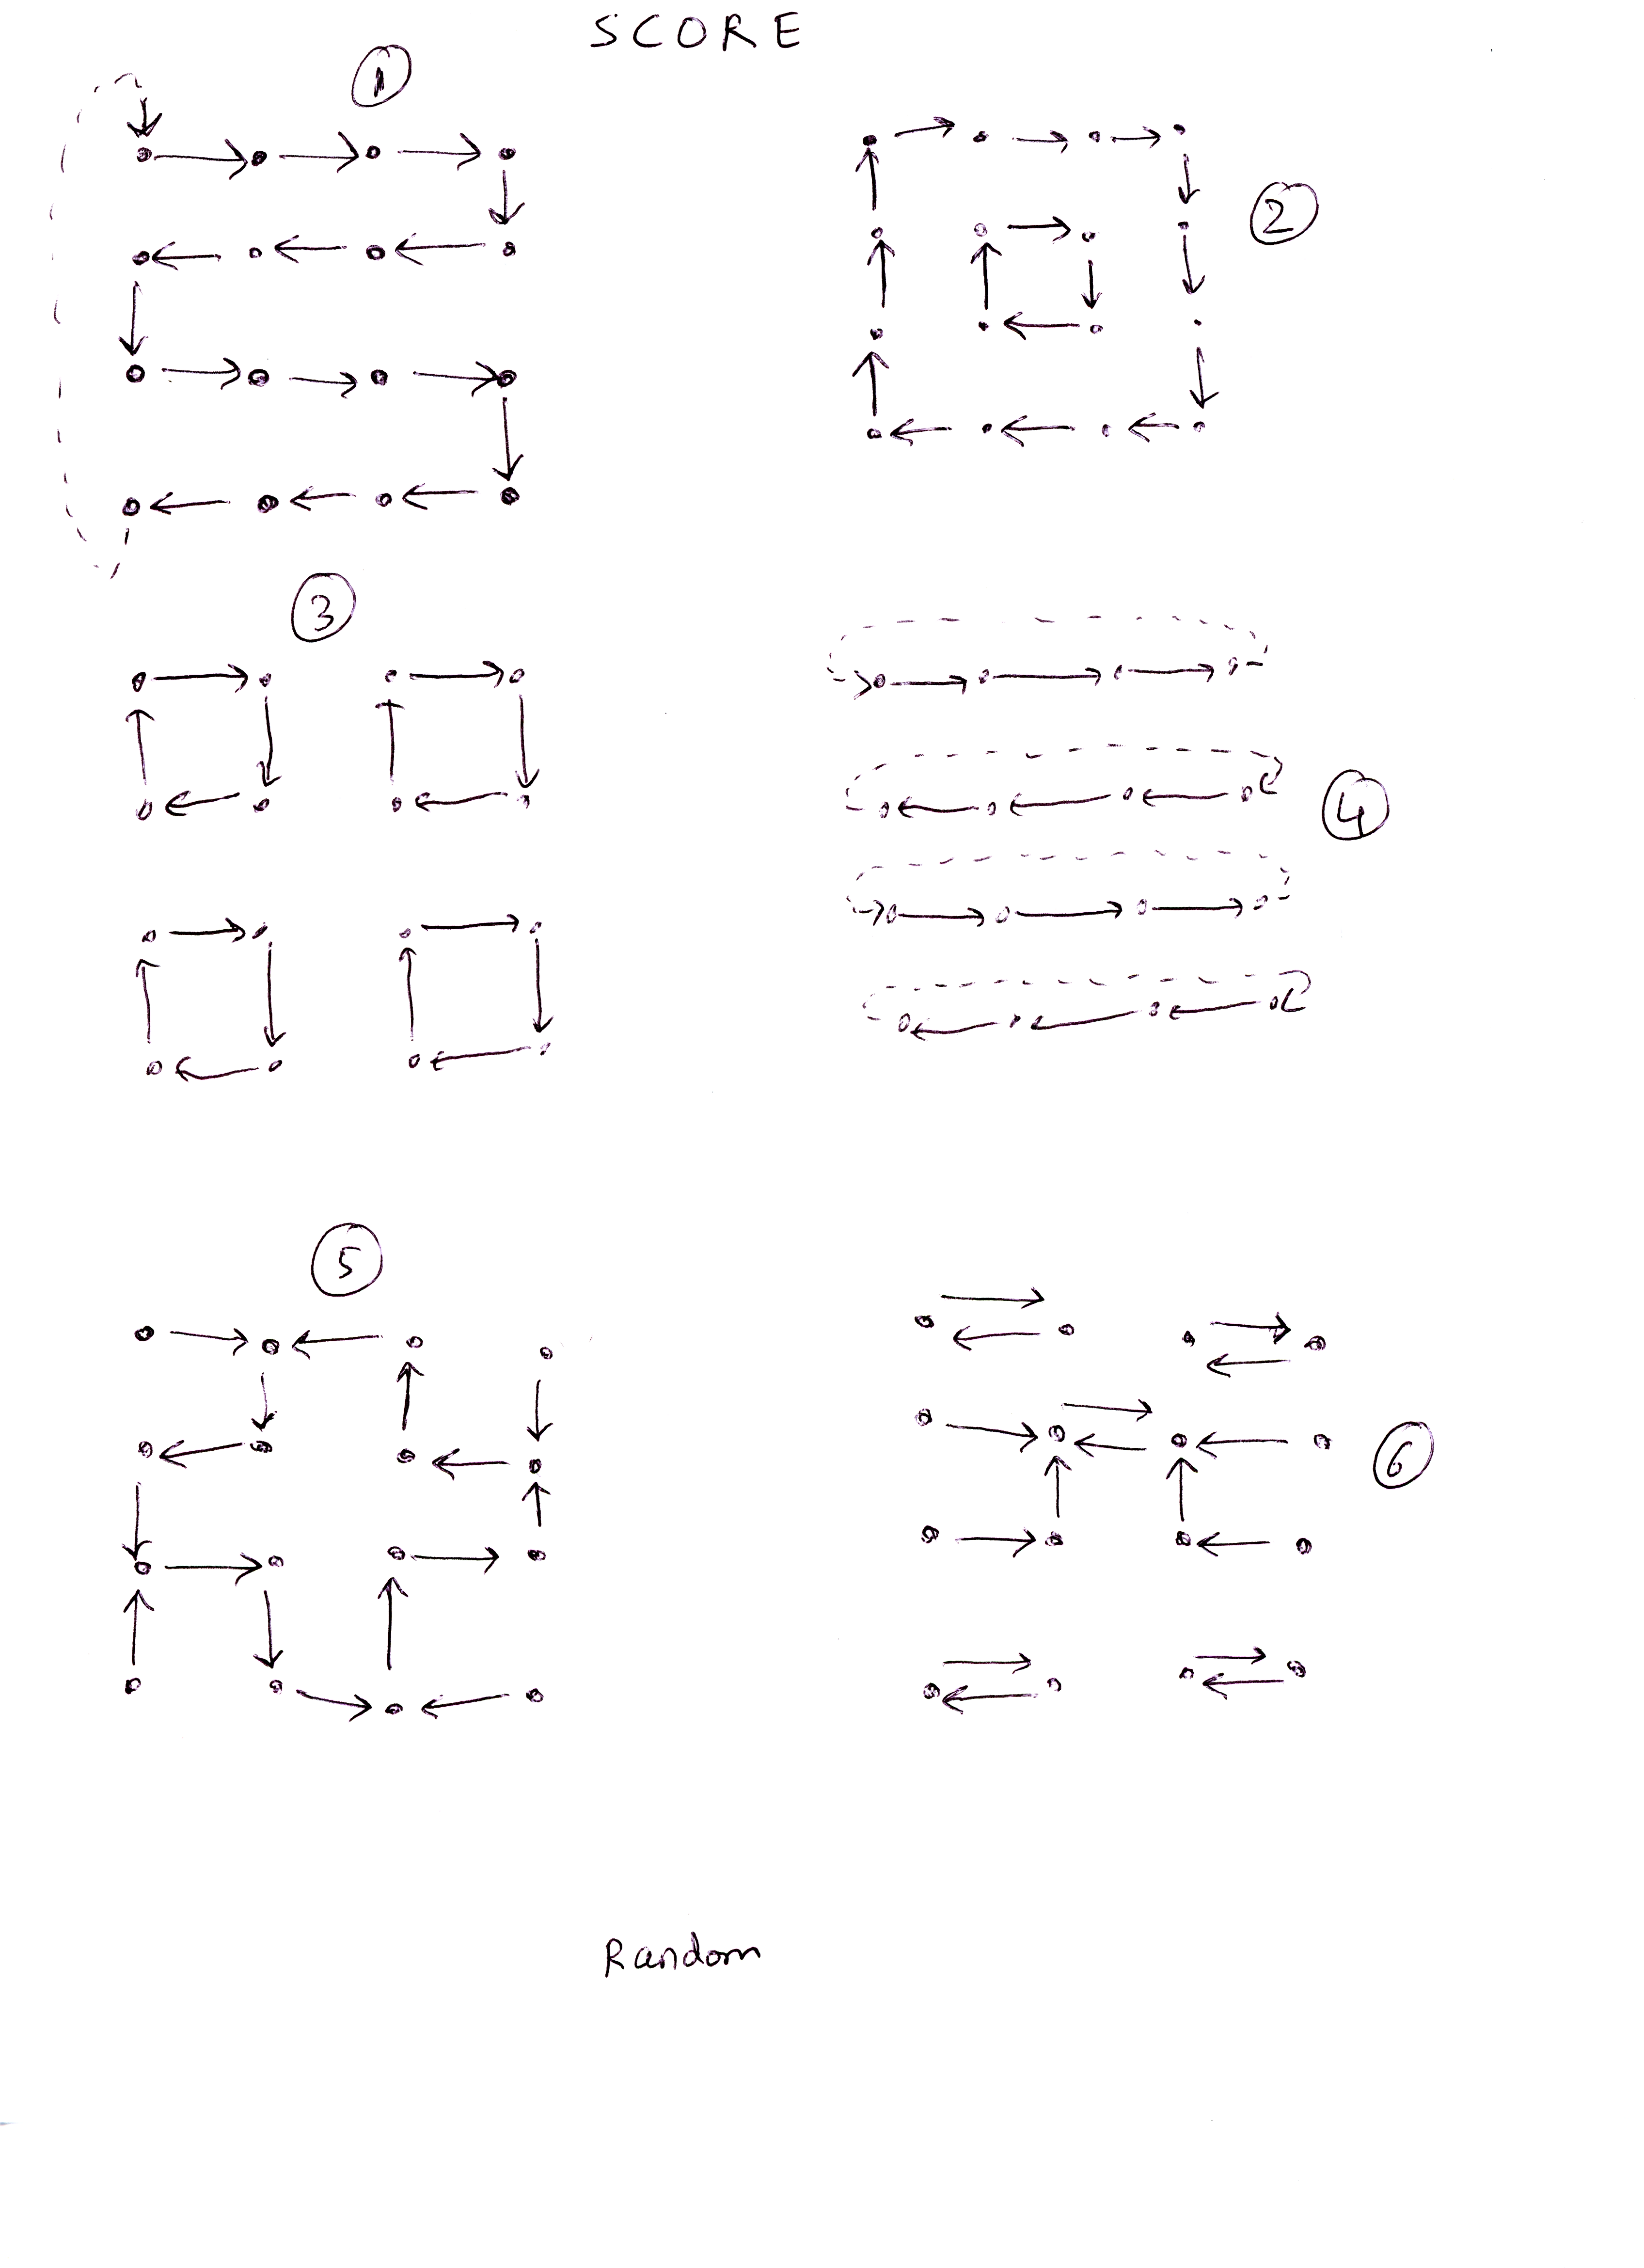 SCORE
1
2
3
4
5
6
Random